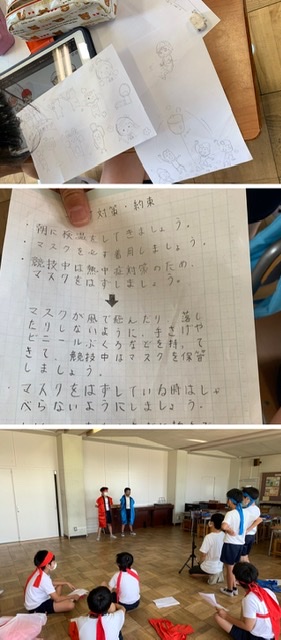 対策・約束
・朝に検温をしてきましょう。
・マスクを必ず着用しましょう。
・競技中は熱中症対策のため、
マスクをはずしましょう。
マスクが風で飛んだり、落し
たりしないように、手さげや
ビニールぶくろなどを持って
きて、競技中はマスクを保管
しましょう。
・マスクをはずしている時はしゃ
べらないようにしましょう。